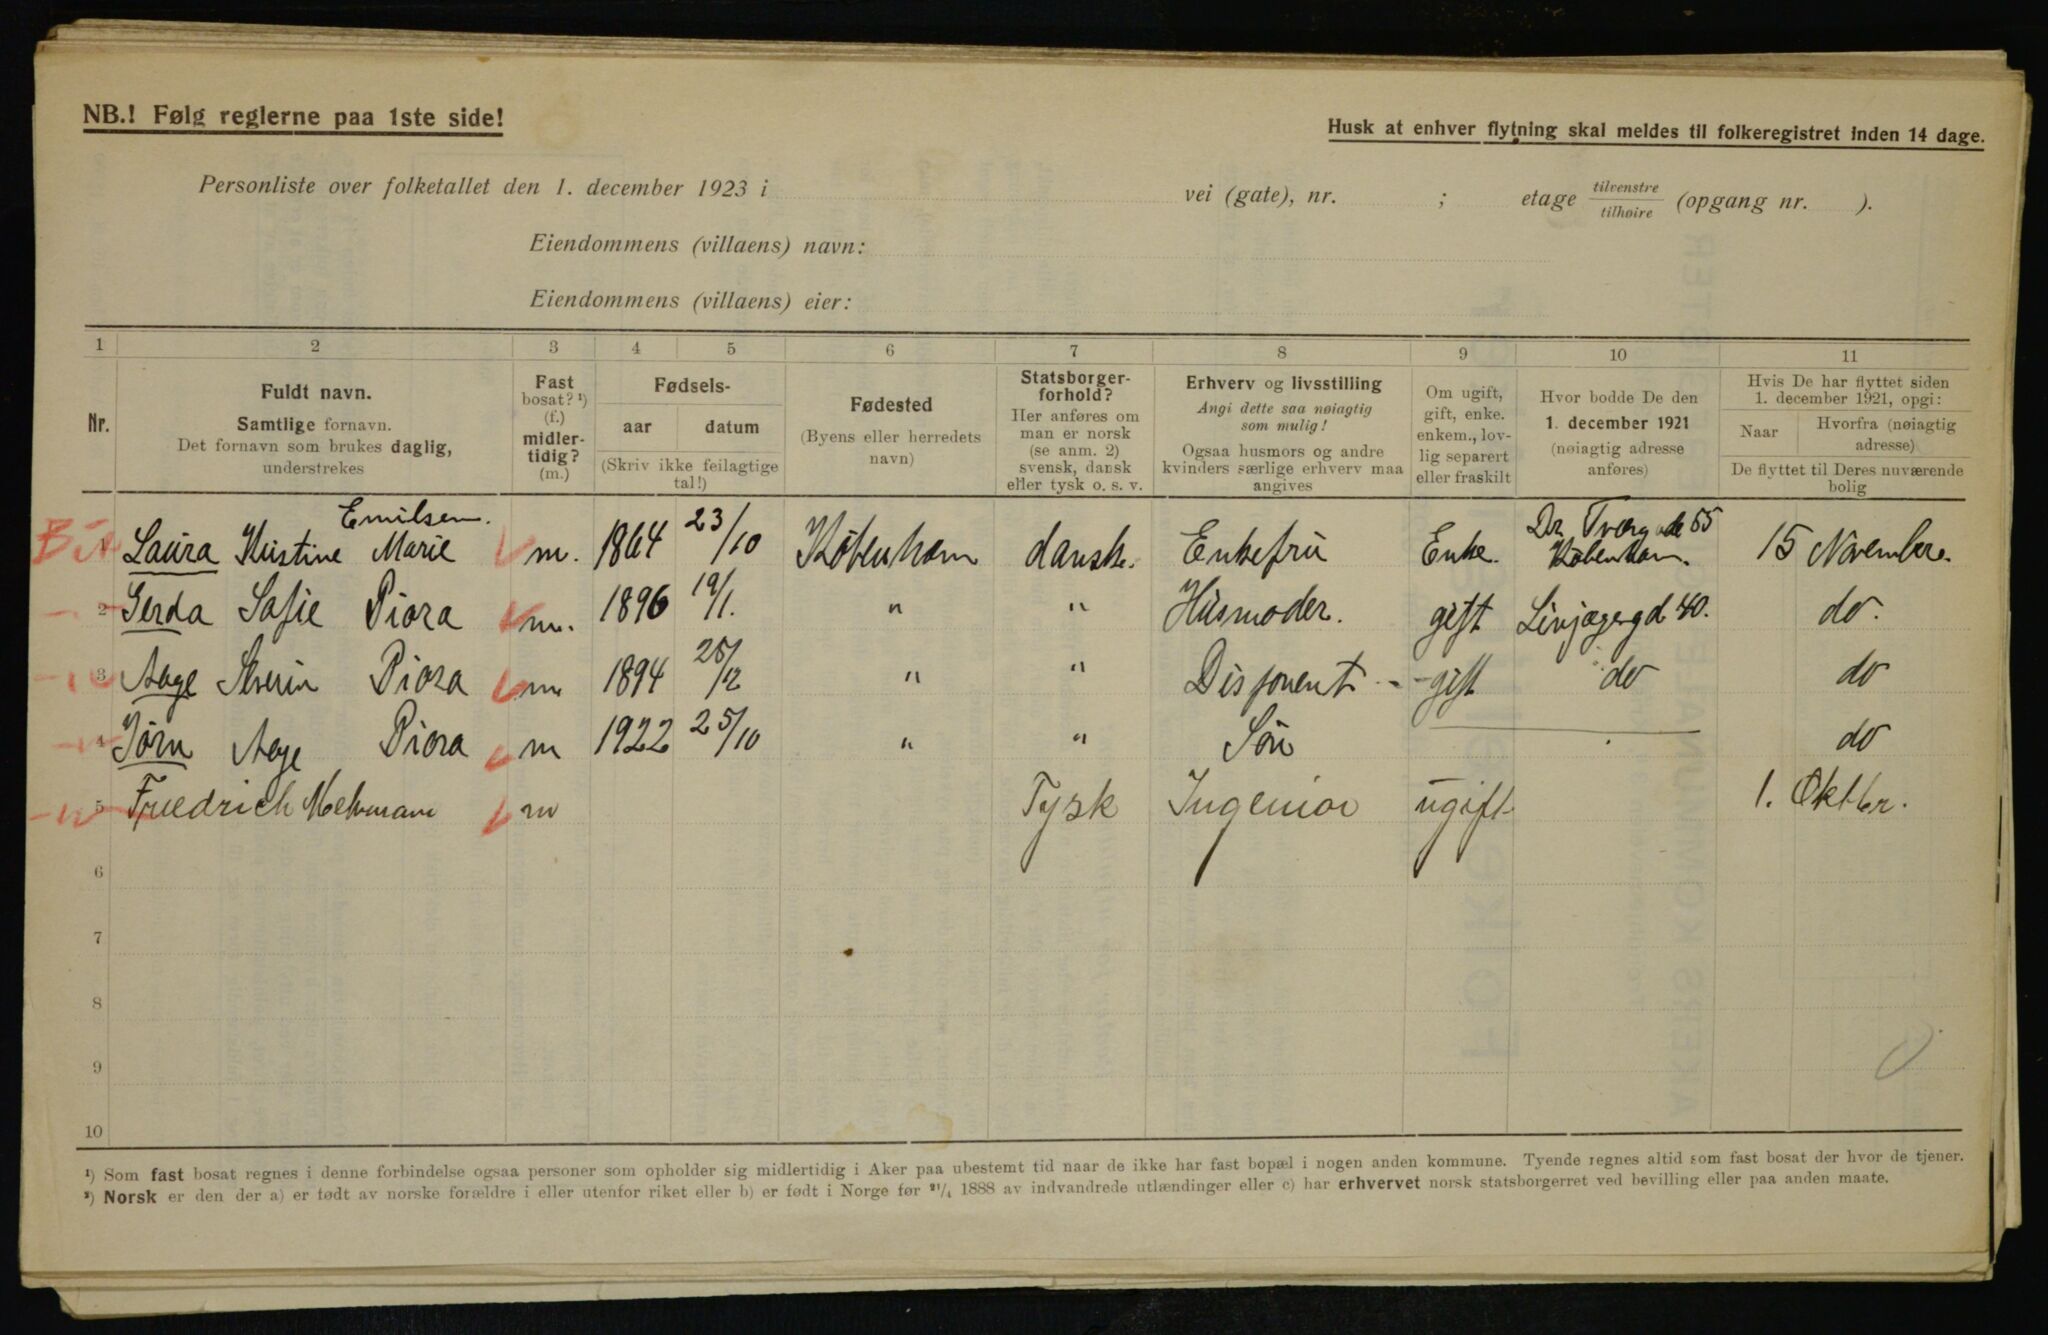 NB.! Følg reglerne paa 1ste side!
Husk at enhver flytning skal meldes til folkeregistret inden 14 dage.
Personliste over folketallet den 1. december 1923 i vei (gate), nr. ; etage tilvenstre/tilhøire (opgang nr. ).
Eiendommens (villaens) navn:
Eiendommens (villaens) eier:
1 2 3 4 5 6 7 8 9 10 11
Nr.
Fuldt navn.
Samtlige fornavn.
Det fornavn som brukes daglig,
understrekes
Fast
bosat? ¹)
(f.)
midler-
tidig?
(m.)
Fødsels-
aar datum
(Skriv ikke feilagtige
tal!)
Fødested
(Byens eller herredets
navn)
Statsborger-
forhold?
Her anføres om
man er norsk
(se anm. 2)
svensk, dansk
eller tysk o. s. v.
Erhverv og livsstilling
Angi dette saa nøiagtig
som mulig!
Ogsaa husmors og andre
kvinders særlige erhverv maa
angives
Om ugift,
gift, enke.
enkem., lov-
lig separert
eller fraskilt
Hvor bodde De den
1. december 1921
(nøiagtig adresse
anføres)
Hvis De har flyttet siden
1. december 1921, opgi:
Naar
Hvorfra (nøiagtig
adresse)
De flyttet til Deres nuværende
bolig
Emilsen.
1 Laura Kristine Marie m. 1864 23/10 København dansk. Enkefrü Enke. Dr. Tværgade 55
København. 15 November
2 Gerda Sofie Piora m. 1896 19/1. " " Hüsmoder. gift Livjægergd 40. do.
3 Aage Severin Piora m 1894 25/2 " " Disponent - - gift do do
4 Jörn Aage Piora m 1922 25/10 " " Sön do
5 Friedrich m Tysk Ingeniør ugift 1. Oktbr.
6
7
8
9
10
¹) Som fast bosat regnes i denne forbindelse ogsaa personer som opholder sig midlertidig i Aker paa ubestemt tid naar de ikke har fast bopæl i nogen anden kommune. Tyende regnes altid som fast bosat der hvor de tjener.
²) Norsk er den der a) er født av norske forældre i eller utenfor riket eller b) er født i Norge før ²¹/₄ 1888 av indvandrede utlændinger eller c) har erhvervet norsk statsborgerret ved bevilling eller paa anden maate.